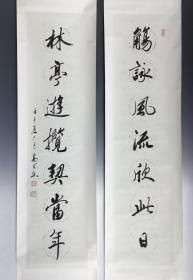 觴詠風流欣此日
林亭遊攬契當年